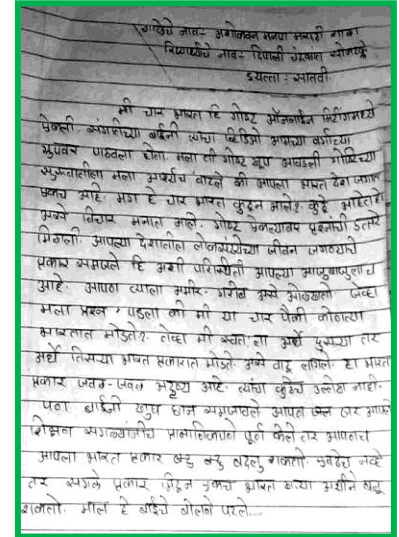 शाळेचे नाव:- अशोकवन मनपा मराठी शाळा
विद्यार्थ्याचे नाव:- दिपाली चंद्रकांत
इयत्ता : सातवी
मी चार भारत हि गोष्ट ऑनलाईन मिटिंगमध्ये
ऐकली. संगीतच्या बाईंनी त्याचा व्हिडिओ आमच्या वर्गाच्या
ग्रुपवर पाठवला होता. मला ती गोष्ट खूप आवडली गोष्टिच्या
सुरुवातीला मला आश्चर्य वाटले की आपला भारत देश जगात
एकच आहे. मग हे चार भारत कुठून आले? कुठे आहेत?
असे विचार मनात आले. गोष्ट ऐकल्यावर प्रश्नाची उत्तरे
मिळाली. आपल्या देशातील लोकसंख्येच्या जीवन जगण्याचे
प्रकार समजले हि अशी परिस्थिती आपल्या आजुबाजुलाच
आहे. आपण त्याला अमीर- गरीब असे ओळखतो जेव्हा
मला प्रश्न पडला की मी या चार पैकी कोणत्या
भारतात मोडते?. तेव्हा मी स्वतः ला अर्धे दुसऱ्या तर
अर्धे तिसऱ्या भारत प्रकारात मोडते. असे वाटू लागले. हा भारत
प्रकार जवळ-जवळ अदृश्य आहे. त्यांचा कुठेच उल्लेख नाही.
पण बाईंनी खुप छान समजावले आपण जर आपले
शिक्षण सगळ्यांनीच प्रामाणिकपणे पूर्ण केले तर आपणच
आपला भारत प्रकार हळु हळु बदलु शकतो. एवढेच नव्हे
तर सगळे प्रकार मिटून एकच भारत अशीने बनू
शकतो. मला हे बाईंचे बोलणे पटले....